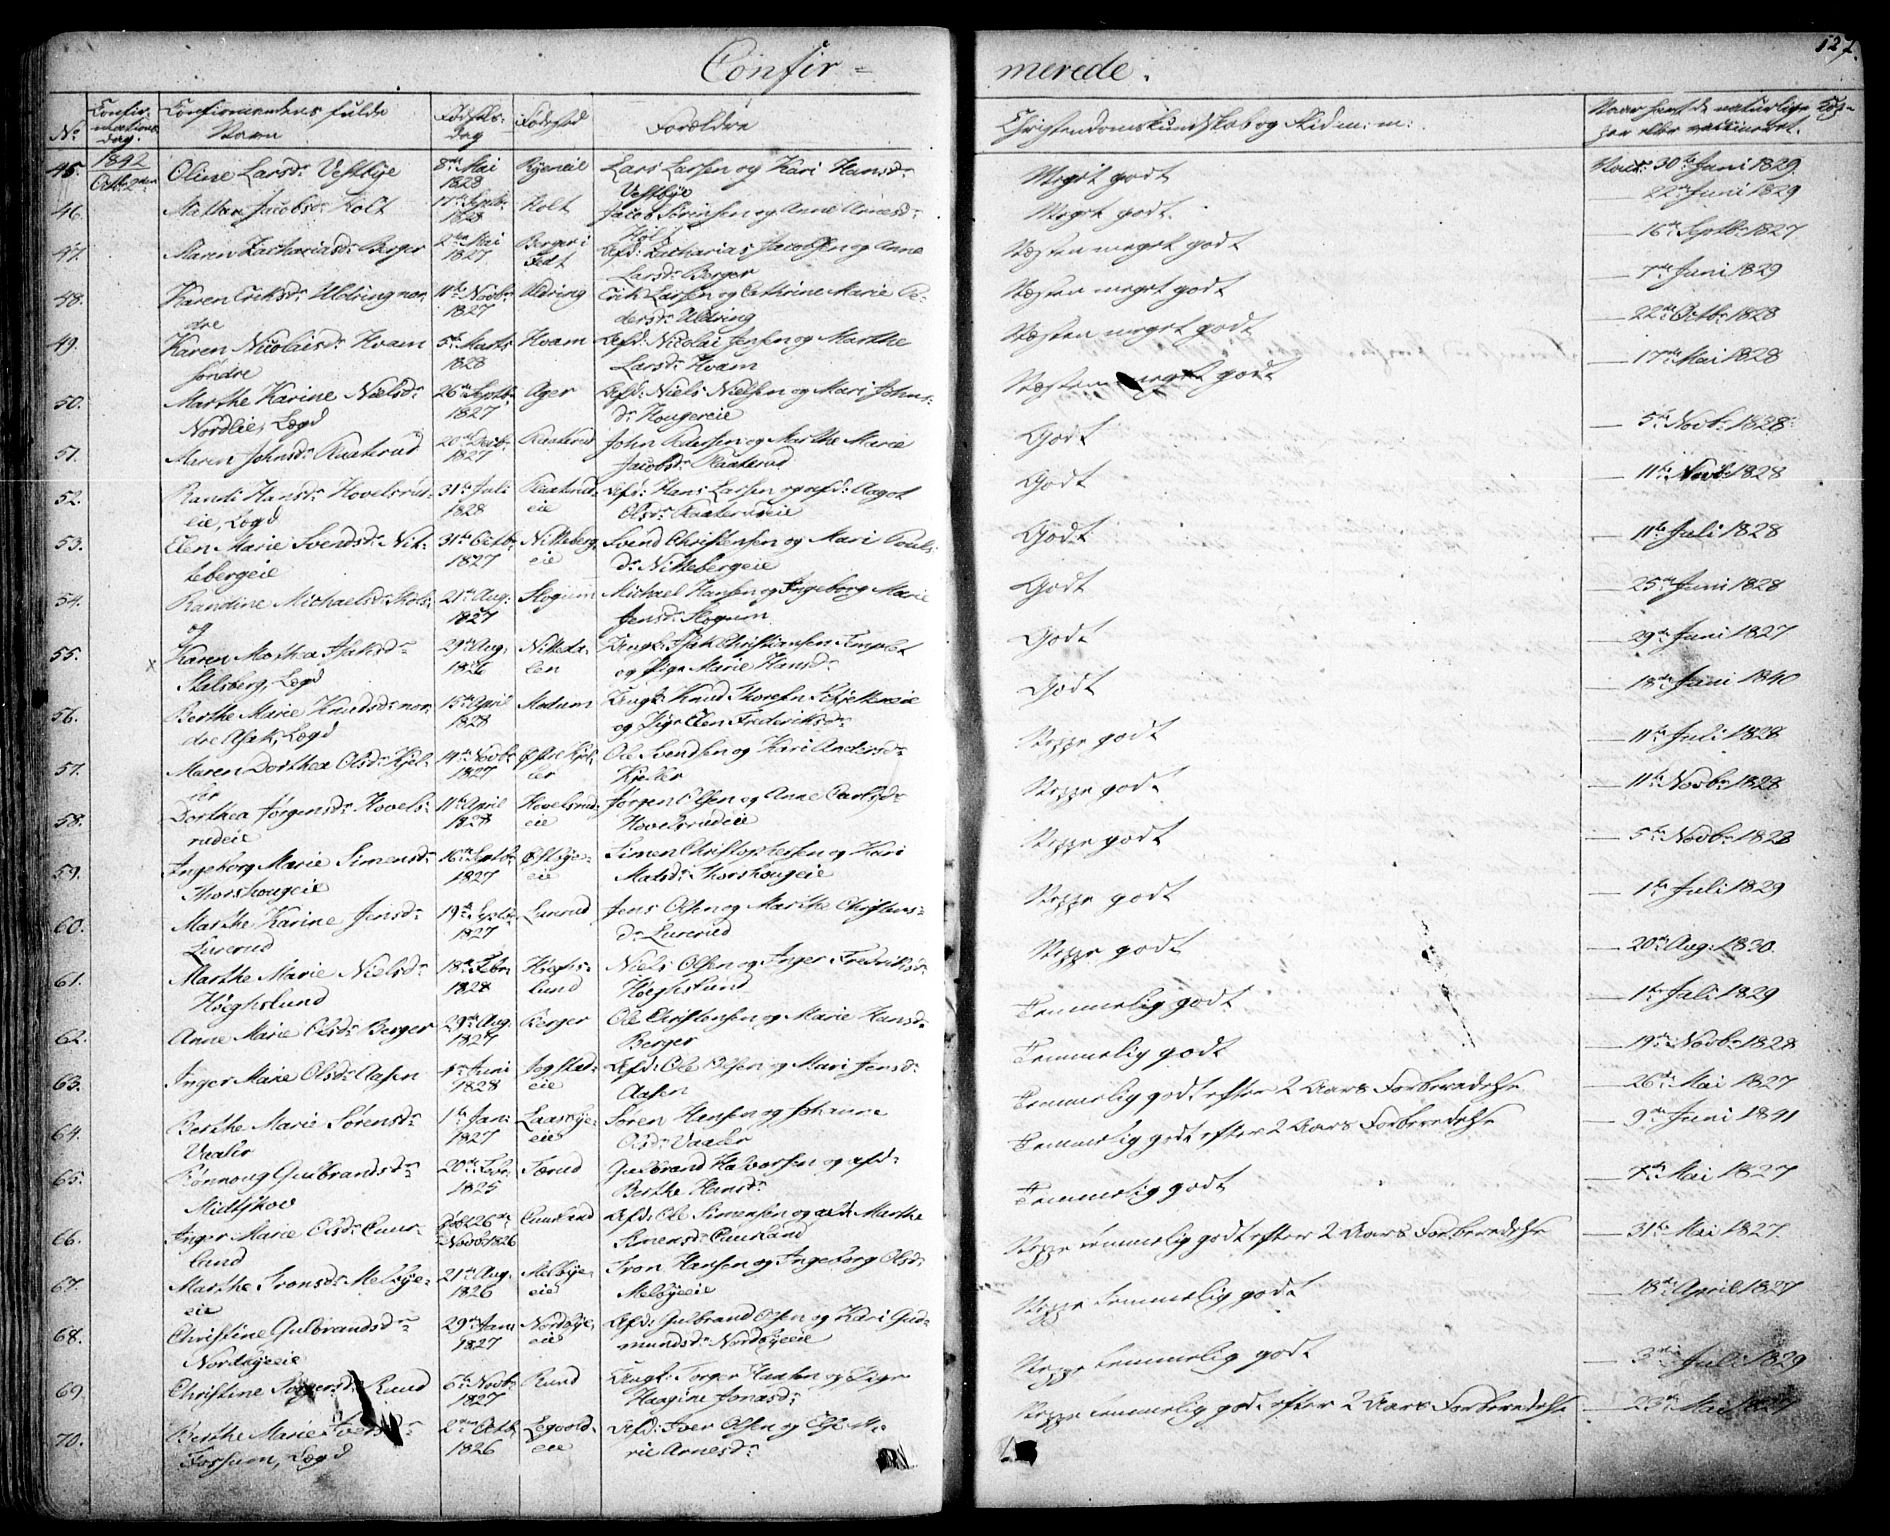 Confir=
merede.
127.
No
Confir-
mations
dag.
Confirmandens fulde
Navn
Fødsels-
dag
Fødested
Forældre
Christendomskundskab og Flid m: m:
Naar havt de naturlige Kop-
per eller vaccineret.
45. 1842 Octbr 2den Oline Larsdr Vestbye 8de Mai 1828 Ryeneie Lars Larsen og Kari Hansdr Vestbye Meget godt Vacc: 30te Juni 1829
46. Jacobsdr Holt 17de Septbr 1828 Holt Jacob Sørensen og Anne Arnesdr Holt Meget godt. 22de Juni 1829
47. Maren Zachariasdr Berger 2den Mai 1827 Berger i Fedt Afd: Zacharias Jacobsen og Anne Larsdr Berger Næsten meget godt 16de Septbr 1827
48. Karen Eriksdr Uldring nordre 11te Novbr 1827 Uldring Erik Larsen og Cathrine Marie Pedersdr Uldring Næsten meget godt 7de Juni 1829
49. Karen Nicolaisdr Hvam søndre 5te Marts 1828 Hvam Afd: Nicolai Jensen og Marthe Larsdr Hvam Næsten meget godt 22de Octbr 1828
50. Marthe Karine Nielsdr Nordlie, Lægd 26de Septbr 1827 Ager Afd: Niels Nielsen og Mari Johnsdr Hougereie Næsten meget godt 17de Mai 1828
51. Maren Johnsdr Raaterud 20de Decbr 1827 Raaterud John Pedersen og Marthe Marie Jacobsdr Raaterud Godt 5te Novbr 1828
52. Randi Hansdr Hovelsrudeie, Lægd 31te Juli 1828 Raaterudeie Afd: Hans Larsen og afd: Aagot Olsdr Raaterudeie Godt 11te Novbr 1828
53. Elen Marie Svendsdr Nittebergeie 31te Octbr 1827 Nittebergeie Svend Christensen og Mari Poulsdr Nittebergeie Godt 11te Juli 1828
54. Randine Michaelsdr Skog 21de Aug: 1827 Skogum Michael Hansen og Ingeborg Marie Jensdr Skogum Godt 25de Juni 1828
55. x Karen Mathea Isaksdr Stalsberg, Lægd 29de Aug. 1826 Nittedalen Ungk: Isak Christiansen Templet og Pige Marie Hansdr Godt 29de Juni 1827
56. Berthe Marie Knudsdr nordre Asak, Lægd 15de April 1828 Modum Ungk: Knud Thoresen og Pige Elen Fredriksdr Godt 18de Juni 1840
57. Maren Dorthea Olsdr Kjeller 14de Novbr 1827 Østre Kjeller Ole Svendsen og Kari Andersdr Kjeller Neppe godt 11te Juli 1828
58. Dorthea Jørgensdr Hovelsrudeie 11te April 1828 Hovelsrudeie Jørgen Olsen og Anne Carlsdr Hovelsrudeie Neppe godt 11te Novbr 1828
59. Ingeborg Marie Simensdr Thorshougeie 16de Septbr 1827 Østbyeeie Simen Christophersen og Kari Matsdr Thorshougeie Neppe godt 5te Novbr 1828
60. Marthe Karine Jensdr Lurerud 19de Septbr 1827 Lurerud Jens Olsen og Marthe Christensdr Lurerud Neppe godt 1te Juli 1829
61. Marthe Marie Nielsdr Høeghslund 18de Febr 1828 Høeghslund Niels Olsen og Inger Fredriksdr Høeghslund Neppe godt 20de Aug: 1830.
62. Anne Marie Olsdr Berger 29de Aug. 1827 Berger Ole Christensen og Marie Hansdr Berger Temmelig godt 1te Juli 1829
63. Inger Marie Olsdr Aasen 1te Juni 1828 Jogstadeie Afd: Ole Olsen og Mari Jensdr Aasen Temmelig godt 19de Novbr 1828
64. Berthe Marie Sørensdr Vaaler 1te Jan: 1827 Laaskyeeie Søren Hansen og Johanne Olsdr Vaaler Temmelig godt efter 2 Aars Forberedelse 26de Mai 1827
65. Rønnoug Gulbrandsdr Midtskov 20de Febr 1825 Tærud Gulbrand Halvorsen og afd. Berthe Hansdr Temmelig godt efter 2 Aars Forberedelse 9de Juni 1841
66. Inger Marie Olsdr Cuurland Døbt 26de Novbr 1826 Cuurland Afd: Ole Simensen og afd: Marthe Simensdr Cuurland Temmelig godt 7de Mai 1827
67. Marthe Ivonsdr Melbyeeie 21de Aug. 1826 Melbyeeie Ivon Hansen og Ingeborg Olsdr Melbyeeie Neppe temmelig godt efter 2 Aars Forberedelse 31te Mai 1827.
68. Christine Gulbrandsdr Nordbyeeie 29de Jan: 1827 Nordbyeeie Afd: Gulbrand Olsen og Kari Gudmundsdr Nordbyeeie Neppe temmelig godt 18de April 1827
69. Christine Torgersdr Ruud 6te Novbr 1827 Ruud Ungk: Torger Hansen og Pige Haagine Jonasdr Neppe temmelig godt 3die Juli 1829
70. Berthe Marie Iversdr Fossum, Lægd 2den Octbr 1826 Legvoldeie Afd: Iver Olsen og Else Marie Arnesdr Neppe temmelig godt efter 2 Aars Forberedelse 23de Mai 1827